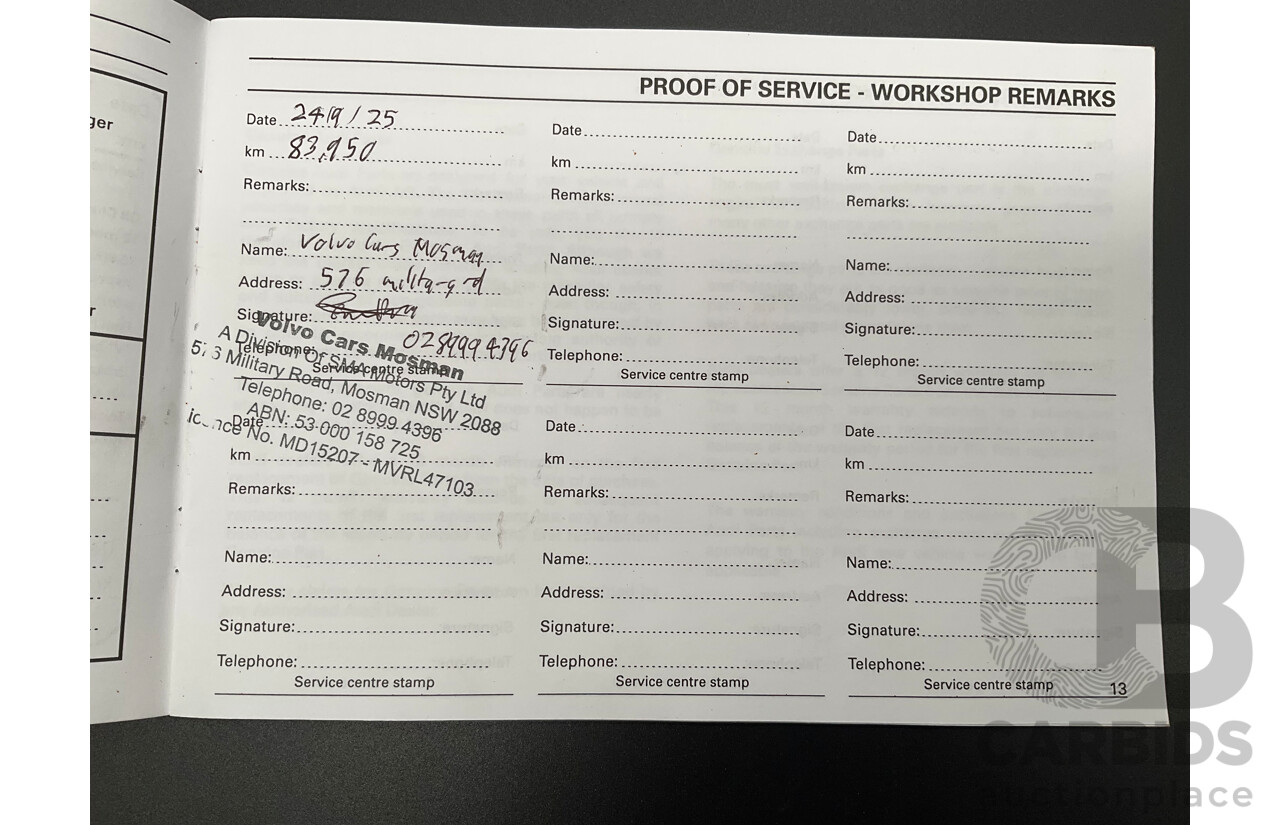 ger
r
PROOF OF SERVICE - WORKSHOP REMARKS
Date 24/9/25
km 83,950
Remarks:
Name: Volvo Cars Mosman
Address: 576 military rd
Signature:
Telephone: 0289994396
Service centre stamp
Volvo Cars Mosman
A Division Of SMA Motors Pty Ltd
Military Road, Mosman NSW 2088
Telephone: 02 8999 4396
ABN: 53 000 158 725
No. MD15207 - MVRL47103
Date
km
Remarks:
Name:
Address:
Signature:
Telephone:
Service centre stamp
Date
km
Remarks:
Name:
Address:
Signature:
Telephone:
Service centre stamp
Date
km
Remarks:
Name:
Address:
Signature:
Telephone:
Service centre stamp
Date
km
Remarks:
Name:
Address:
Signature:
Telephone:
Service centre stamp
Date
km
Remarks:
Name:
Address:
Signature:
Telephone:
Service centre stamp
13
CARBIDS
auctionplace